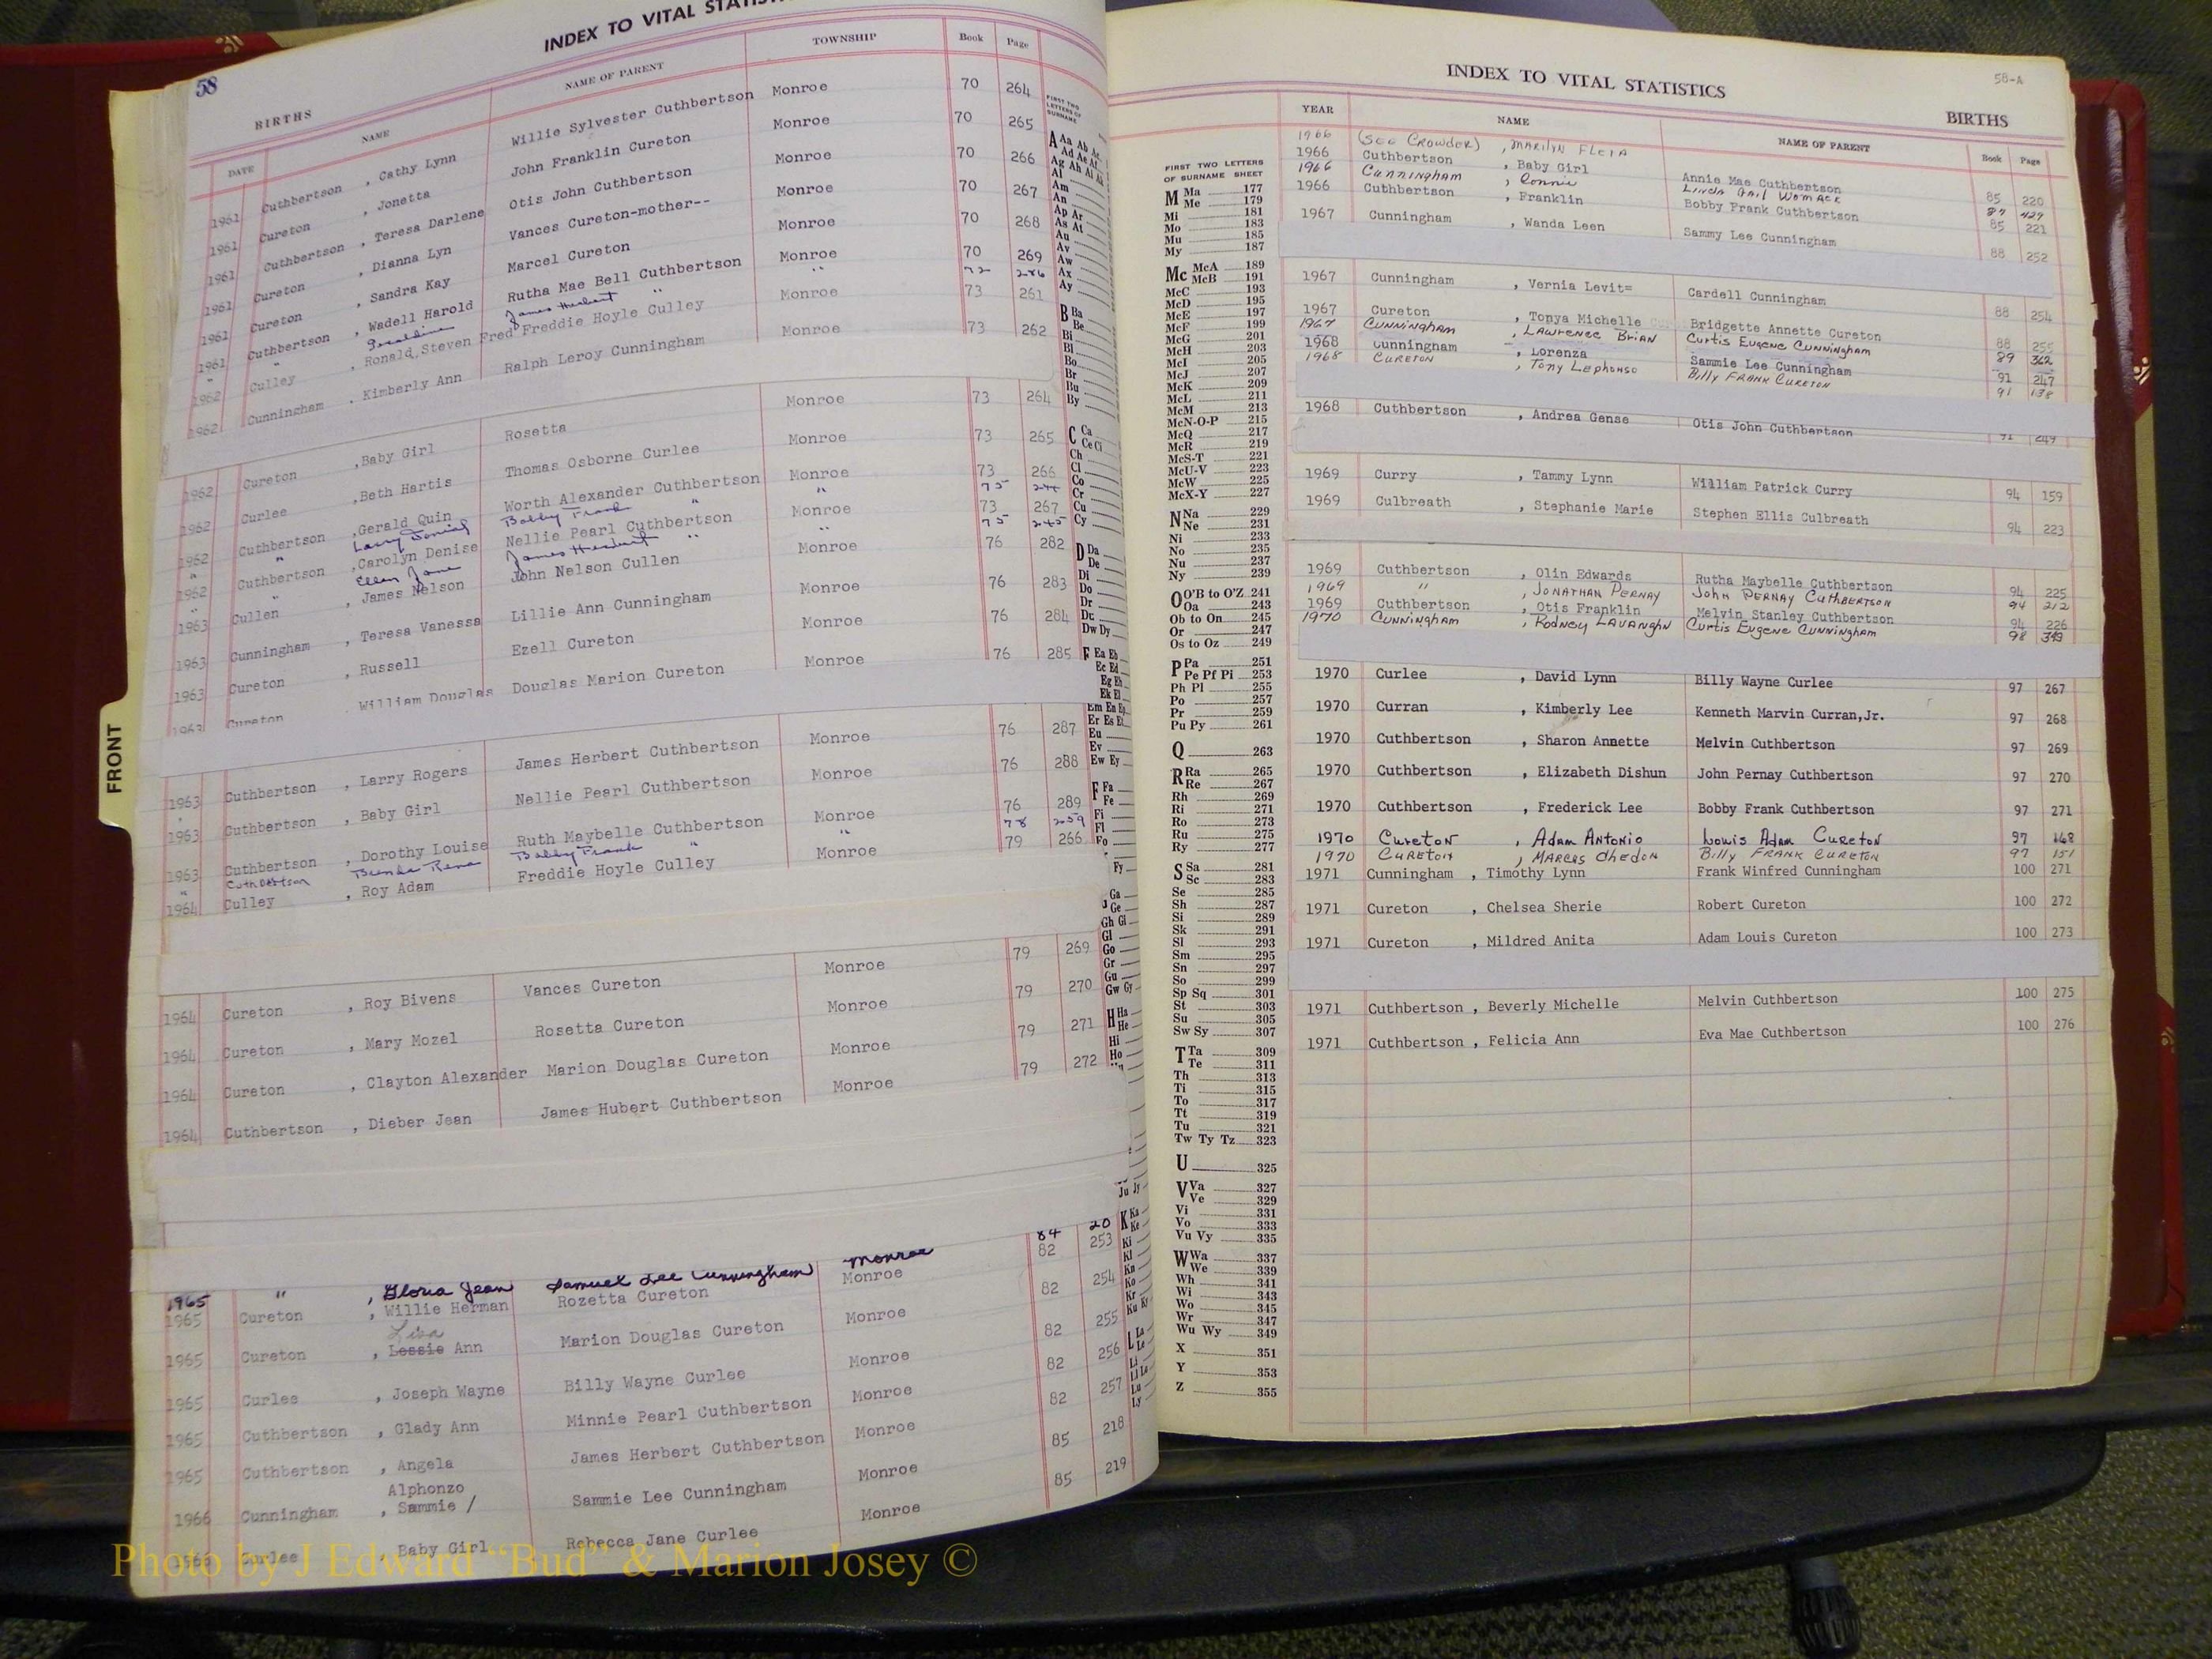 58
INDEX TO VITAL
BIRTHS
DATE NAME NAME OF PARENT TOWNSHIP Book Page
1961 Cuthbertson , Cathy Lynn Willie Sylvester Cuthbertson Monroe 70 264
1961 Cureton , Jonetta John Franklin Cureton Monroe 70 265
1961 Cuthbertson , Teresa Darlene Otis John Cuthbertson Monroe 70 266
1961 Cureton , Dianna Lyn Vances Cureton-mother-- Monroe 70 267
1961 Cureton , Sandra Kay Marcel Cureton Monroe 70 268
1961 Cuthbertson , Wadell Harold Rutha Mae Bell Cuthbertson Monroe 70 269
" " Geraldine James Herbert " " 72 286
1962 Culley , Ronald Steven Fred Freddie Hoyle Culley Monroe 73 261
1962 Cunningham , Kimberly Ann Ralph Leroy Cunningham Monroe 73 262
1962 Cureton ,Baby Girl Rosetta Monroe 73 264
1962 Curlee ,Beth Hartis Thomas Osborne Curlee Monroe 73 265
1962 Cuthbertson ,Gerald Quin Worth Alexander Cuthbertson Monroe 73 266
" " Larry Bobby Frank " " 75 244
1962 Cuthbertson ,Carolyn Denise Nellie Pearl Cuthbertson Monroe 73 267
" " Ellen Jane James Herbert " " 75 245
1963 Cullen , James Nelson John Nelson Cullen Monroe 76 282
1963 Cunningham , Teresa Vanessa Lillie Ann Cunningham Monroe 76 283
1963 Cureton , Russell Ezell Cureton Monroe 76 284
1963 Cureton William Douglas Douglas Marion Cureton Monroe 76 285
1963 Cuthbertson , Larry Rogers James Herbert Cuthbertson Monroe 76 287
1963 Cuthbertson , Baby Girl Nellie Pearl Cuthbertson Monroe 76 288
1963 Cuthbertson , Dorothy Louise Ruth Maybelle Cuthbertson Monroe 76 289
" Cuthbertson Brenda Rena Bobby Frank " " 78 259
1964 Culley , Roy Adam Freddie Hoyle Culley Monroe 79 266
1964 Cureton , Roy Bivens Vances Cureton Monroe 79 269
1964 Cureton , Mary Mozel Rosetta Cureton Monroe 79 270
1964 Cureton , Clayton Alexander Marion Douglas Cureton Monroe 79 271
1964 Cuthbertson , Dieber Jean James Hubert Cuthbertson Monroe 79 272
1965 " , Gloria Jean Samuel Lee Cunningham Monroe 84 20
1965 Cureton , Willie Herman Rozetta Cureton Monroe 82 253
Lisa
1965 Cureton , Lessie Ann Marion Douglas Cureton Monroe 82 254
1965 Curlee , Joseph Wayne Billy Wayne Curlee Monroe 82 255
1965 Cuthbertson , Glady Ann Minnie Pearl Cuthbertson Monroe 82 256
1965 Cuthbertson , Angela James Herbert Cuthbertson Monroe 82 257
Alphonzo
1966 Cunningham , Sammie / Sammie Lee Cunningham Monroe 85 218
1966 Curlee , Baby Girl Rebecca Jane Curlee Monroe 85 219
FRONT
INDEX TO VITAL STATISTICS
58-A
BIRTHS
YEAR NAME NAME OF PARENT Book Page
1966 (SEE CROWDER) , MARILYN FLETA
1966 Cuthbertson , Baby Girl Annie Mae Cuthbertson 85 220
1966 CUNNINGHAM , Connie LINDA GAIL WOMACK 87 429
1966 Cuthbertson , Franklin Bobby Frank Cuthbertson 85 221
1967 Cunningham , Wanda Leen Sammy Lee Cunningham 88 252
1967 Cunningham , Vernia Levit= Cardell Cunningham 88 254
1967 Cureton , Tonya Michelle Bridgette Annette Cureton 88 255
1967 CUNNINGHAM , LAWRENCE BRIAN CURTIS EUGENE CUNNINGHAM 89 362
1968 Cunningham , Lorenza Sammie Lee Cunningham 91 247
1968 CURETON , TONY LEPHONSO BILLY FRANK CURETON 91 138
1968 Cuthbertson , Andrea Gense Otis John Cuthbertson 91 249
1969 Curry , Tammy Lynn William Patrick Curry 94 159
1969 Culbreath , Stephanie Marie Stephen Ellis Culbreath 94 223
1969 Cuthbertson , Olin Edwards Rutha Maybelle Cuthbertson 94 225
1969 " , JONATHAN PERNAY JOHN PERNAY CUTHBERTSON 94 212
1969 Cuthbertson , Otis Franklin Melvin Stanley Cuthbertson 94 226
1970 CUNNINGHAM , RODNEY LAVAUGHN CURTIS EUGENE CUNNINGHAM 98 349
1970 Curlee , David Lynn Billy Wayne Curlee 97 267
1970 Curran , Kimberly Lee Kenneth Marvin Curran,Jr. 97 268
1970 Cuthbertson , Sharon Annette Melvin Cuthbertson 97 269
1970 Cuthbertson , Elizabeth Dishun John Pernay Cuthbertson 97 270
1970 Cuthbertson , Frederick Lee Bobby Frank Cuthbertson 97 271
1970 Cureton , Adam Antonio Louis Adam Cureton 97 168
1970 CURETON , MARCUS Shedon BILLY FRANK CURETON 97 151
1971 Cunningham , Timothy Lynn Frank Winfred Cunningham 100 271
1971 Cureton , Chelsea Sherie Robert Cureton 100 272
1971 Cureton , Mildred Anita Adam Louis Cureton 100 273
1971 Cuthbertson , Beverly Michelle Melvin Cuthbertson 100 275
1971 Cuthbertson , Felicia Ann Eva Mae Cuthbertson 100 276
FIRST TWO LETTERS
OF SURNAME SHEET
M Ma 177
Me 179
Mi 181
Mo 183
Mu 185
My 187
Mc McA 189
McB 191
McC 193
McD 195
McE 197
McF 199
McG 201
McH 203
McI 205
McJ 207
McK 209
McL 211
McM 213
McN-O-P 215
McQ 217
McR 219
McS-T 221
McU-V 223
McW 225
McX-Y 227
N Na 229
Ne 231
Ni 233
No 235
Nu 237
Ny 239
O O'B to O'Z 241
Oa 243
Ob to On 245
Or 247
Os to Oz 249
P Pa 251
Pe Pf Pi 253
Ph Pl 255
Po 257
Pr 259
Pu Py 261
Q 263
R Ra 265
Re 267
Rh 269
Ri 271
Ro 273
Ru 275
Ry 277
S Sa 281
Sc 283
Se 285
Sh 287
Si 289
Sk 291
Sl 293
Sm 295
Sn 297
So 299
Sp Sq 301
St 303
Su 305
Sw Sy 307
T Ta 309
Te 311
Th 313
Ti 315
To 317
Tt 319
Tu 321
Tw Ty Tz 323
U 325
V Va 327
Ve 329
Vi 331
Vo 333
Vu Vy 335
W Wa 337
We 339
Wh 341
Wi 343
Wo 345
Wr 347
Wu Wy 349
X 351
Y 353
Z 355
Photo by J Edward “Bud” & Marion Josey ©